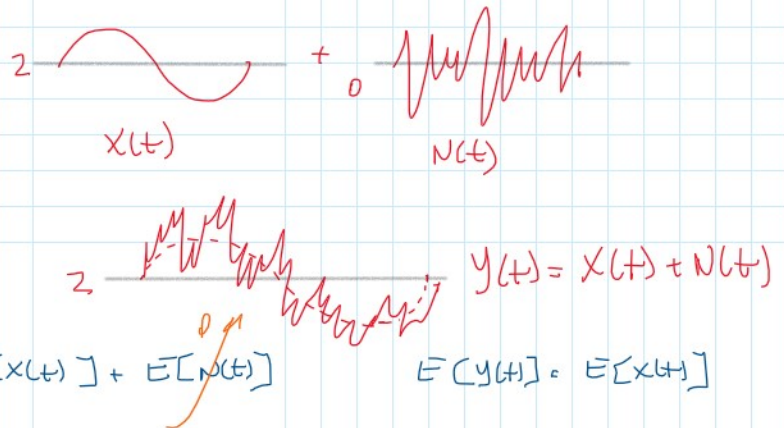 2 + 0
X(t) N(t)
2 Y(t) = X(t) + N(t)
0
X(t)] + E[N(t)] E[Y(t)] = E[X(t)]